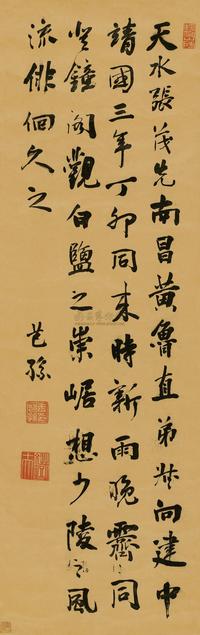 天水張茂先南昌黃魯直弟叔向建中
靖國三年丁卯同來時新雨晚霽同
登鐘閣觀白鹽之崇崛想少陵之風
流俳徊久之
芑孫